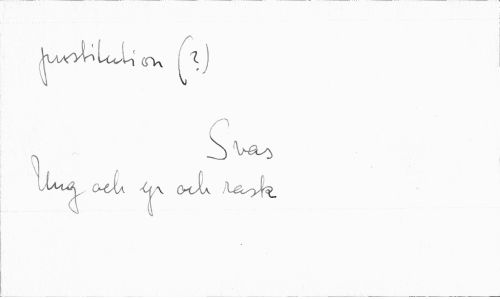 prostitution (?)
Svas
Ung och yr och rask